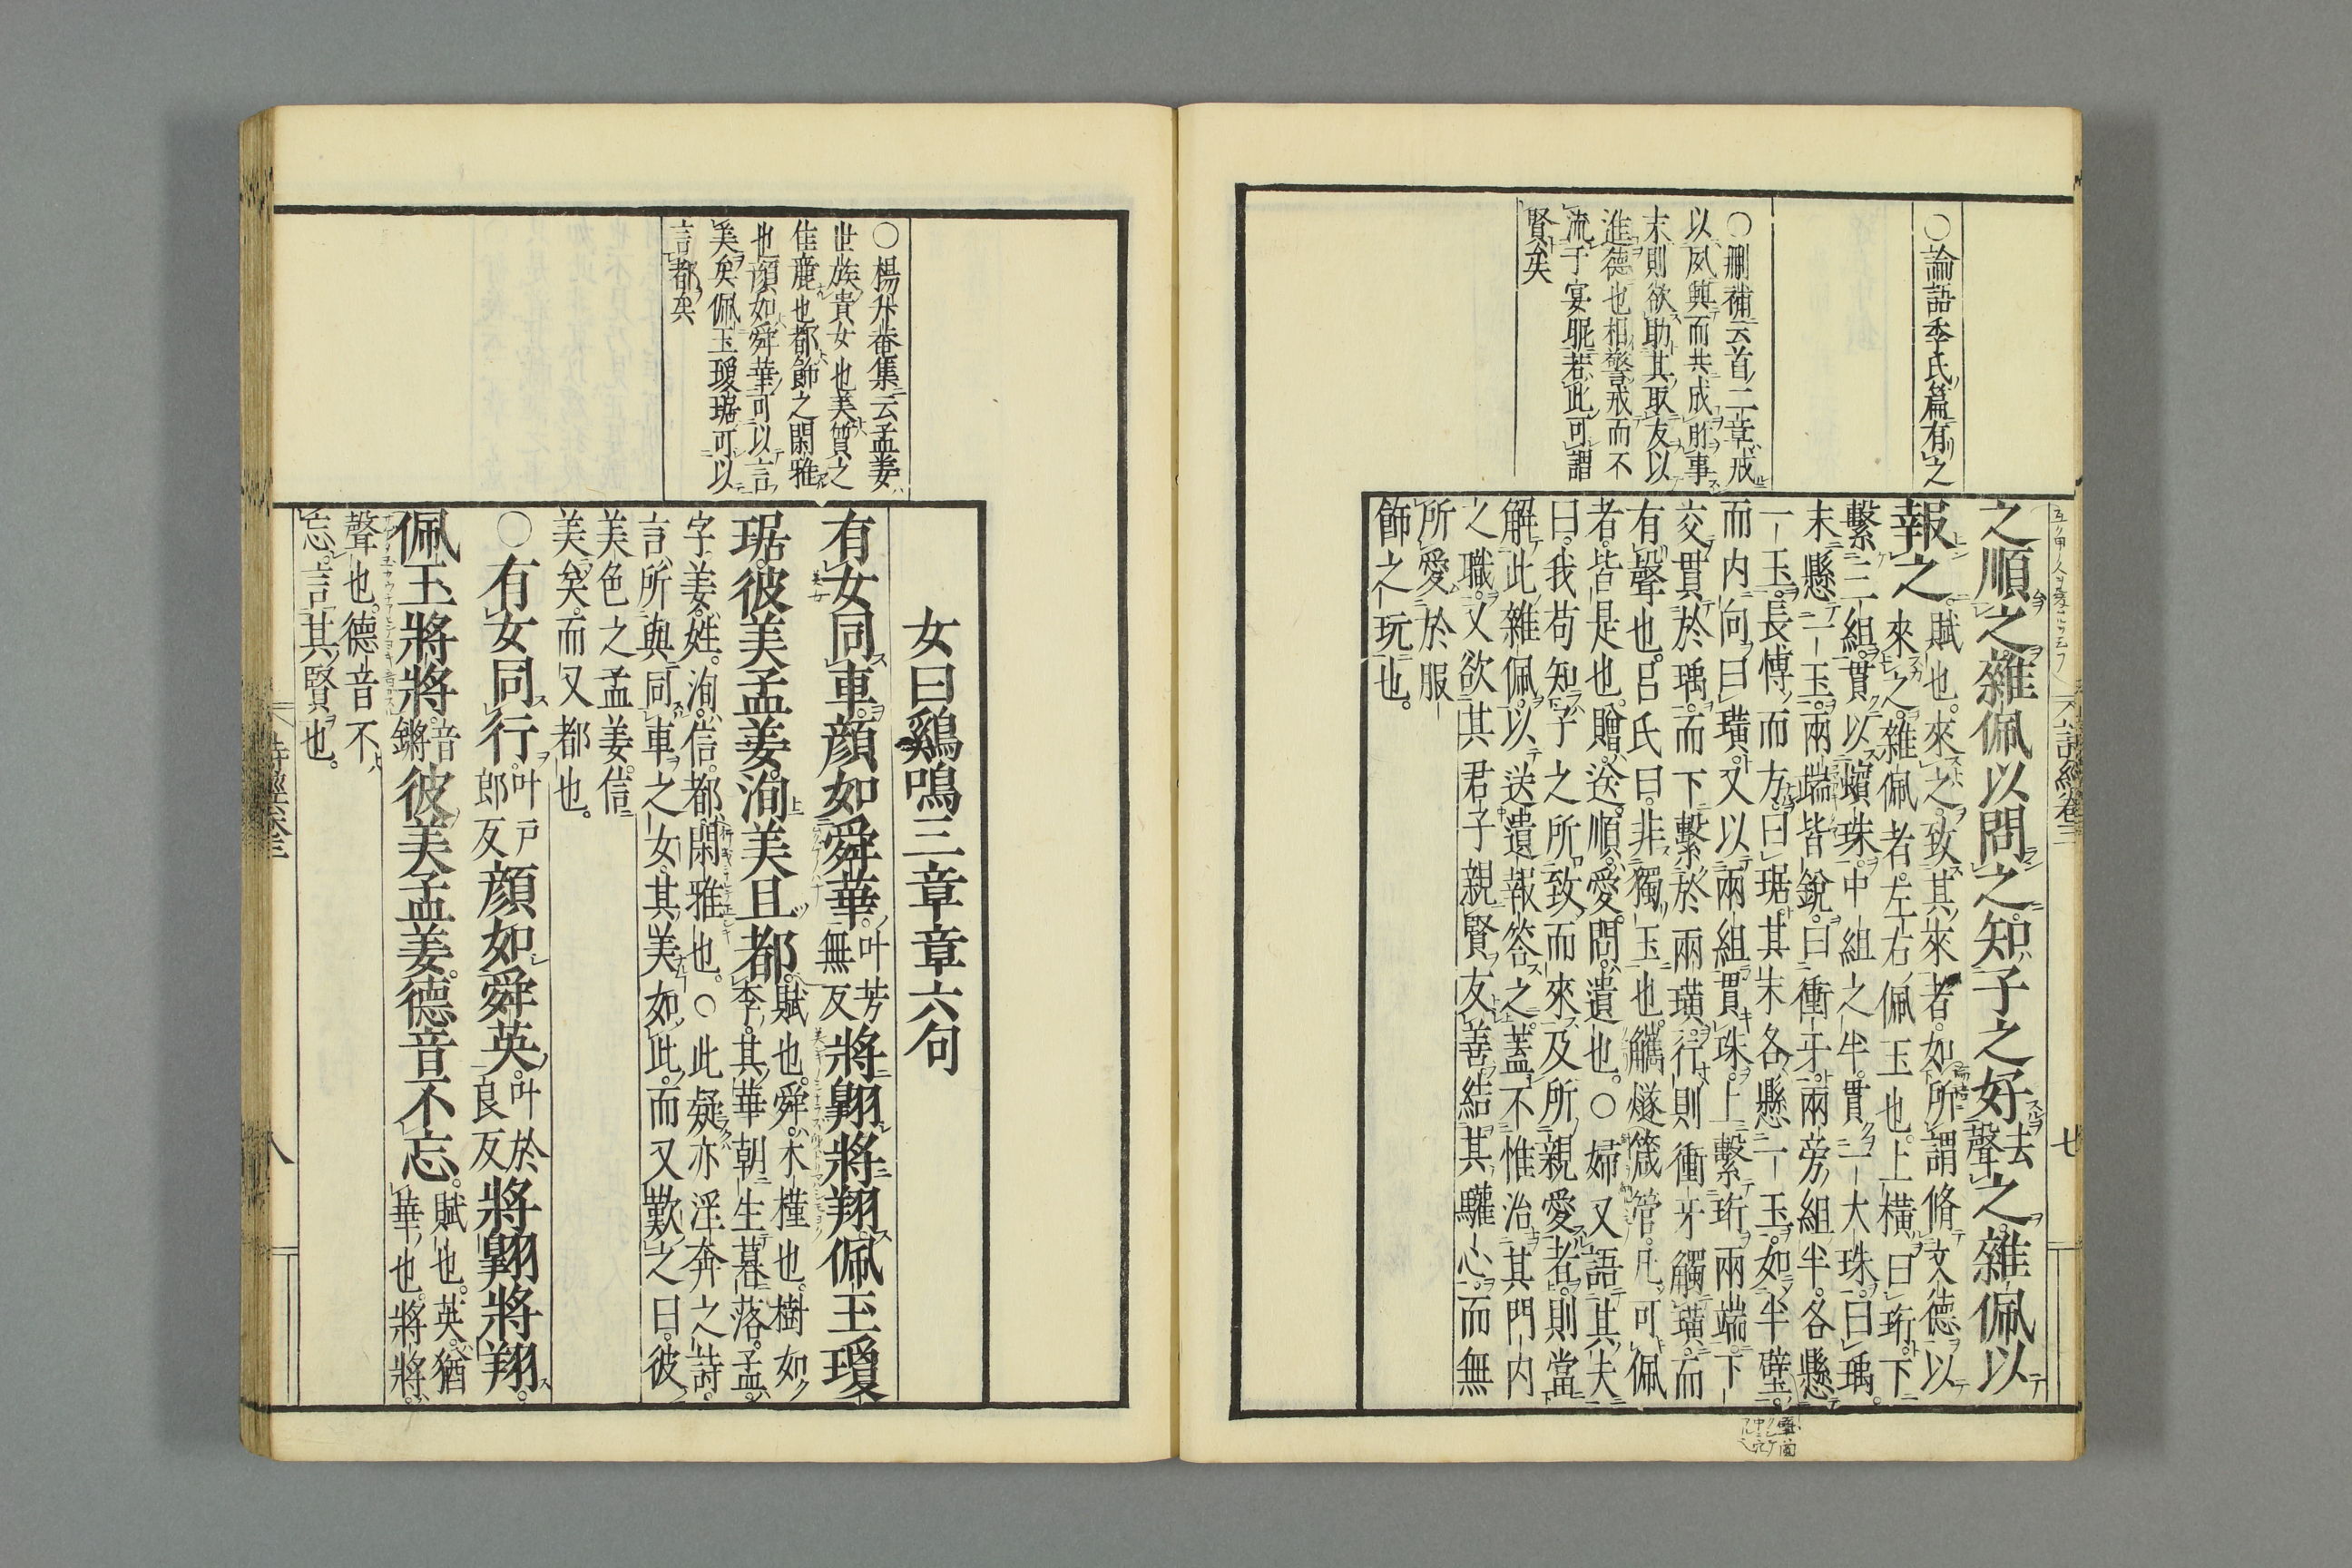 之順之雜佩以問之知子之好去聲之雜佩以
報之賦也來之致其來者如所謂脩文德以
來之雜佩者左右佩玉也上橫曰珩下
繫三組貫以蠙珠中組之半貫一大珠曰瑀
末懸一玉兩端皆銳曰衝牙兩旁組半各懸
一玉長博而方曰琚其末各懸一玉如半璧
而內向曰璜又以兩組貫珠上繫珩兩端下
交貫於瑀而下繫於兩璜行則衝牙觸璜而
有聲也呂氏曰非獨玉也觿燧箴管凡可佩
者皆是也贈送順愛問遺也○婦又語其夫
曰我苟知子之所致而來及所親愛者則當
解此雜佩以送遺報答之蓋不惟治其門內
之職又欲其君子親賢友善結其驩心而無
所愛於服
飾之玩也
○論語季氏篇有之
○刪補云首二章戒
以夙興而共成所事
末則欲助其取友以
進德也相警戒而不
流于宴昵若此可謂
賢矣
詩經卷三
七
女曰鷄鳴三章章六句
有女同車顏如舜華叶芳無反將翱將翔佩玉瓊
琚彼美孟姜洵美且都賦也舜木槿也樹如
李其華朝生暮落孟
字姜姓洵信都閑雅也○此疑亦淫奔之詩
言所與同車之女其美如此而又歎之曰彼
美色之孟姜信
美矣而又都也
○有女同行叶戶郎反顏如舜英叶於良反將翱將翔
佩玉將將音鏘彼美孟姜德音不忘賦也英猶
華也將將
聲也德音不
忘言其賢也
○楊升菴集云孟姜
世族貴女也美質之
佳麗也都飾之閑雅
也顏如舜華可以言
美矣佩玉瓊琚可以
言都矣
詩經卷三
八